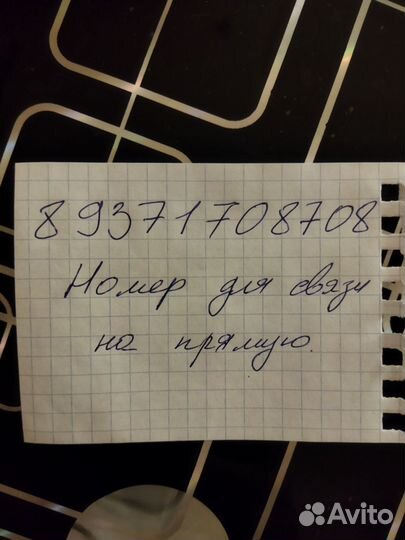 89371708708
Номер для связи
на прямую.
Avito